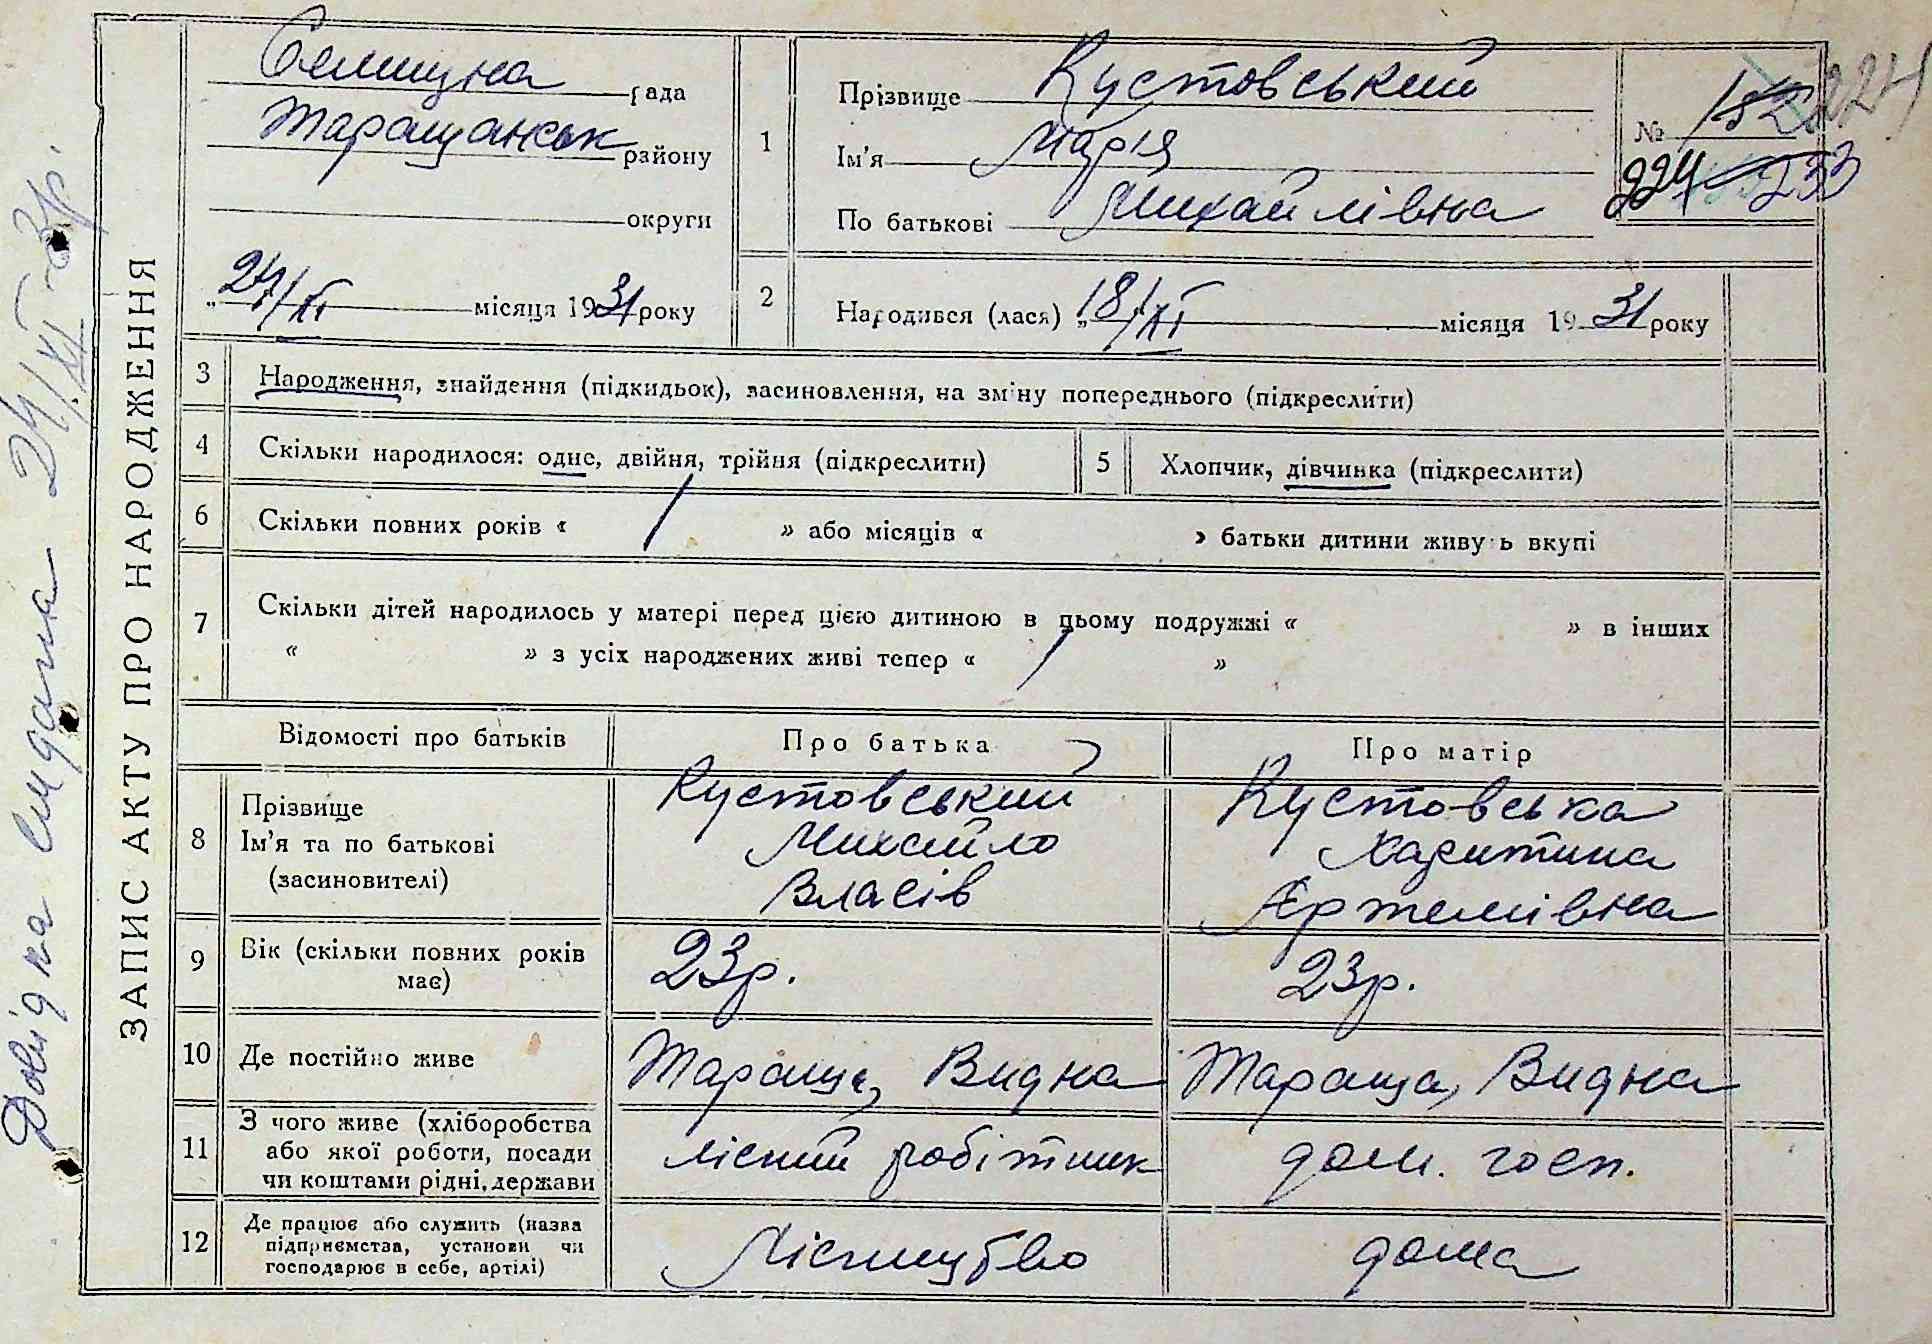 ЗАПИС АКТУ ПРО НАРОДЖЕННЯ
Довідка видана 24/XI-31р.
Селищна рада
Таращанськ району
округи
„24/XI місяця 1931 року
1
Прізвище Кустовський
Ім'я Марія
По батькові Михайлівна
№ 152 224
224 233
2
Народився (лася) „18/XI місяця 1931 року
3 Народження, знайдення (підкидьок), засиновлення, на зміну попереднього (підкреслити)
4 Скільки народилося: одне, двійня, трійня (підкреслити)
5 Хлопчик, дівчинка (підкреслити)
6 Скільки повних років « / » або місяців « » батьки дитини живуть вкупі
7 Скільки дітей народилось у матері перед цією дитиною в цьому подружжі « » в інших
« » з усіх народжених живі тепер « / »
Відомості про батьків Про батька Про матір
8
Прізвище
Ім'я та по батькові
(засиновителі)
Кустовський
Михайло
Власів
Кустовська
Харитина
Артемівна
9 Вік (скільки повних років
має)
23р.
23р.
10 Де постійно живе
Тараща, Видна
Тараща, Видна
11
З чого живе (хліборобства
або якої роботи, посади
чи коштами рідні, держави
лісний робітник
дом. госп.
12
Де працює або служить (назва
підприємства, установи чи
господарює в себе, артілі)
Лісництво
дома